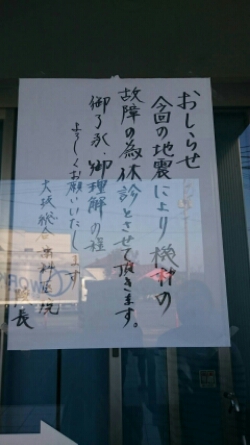 おしらせ
今回の地震により機材の
故障の為休診とさせて頂きます。
御了承、御理解の程
よろしくお願いいたします
院長